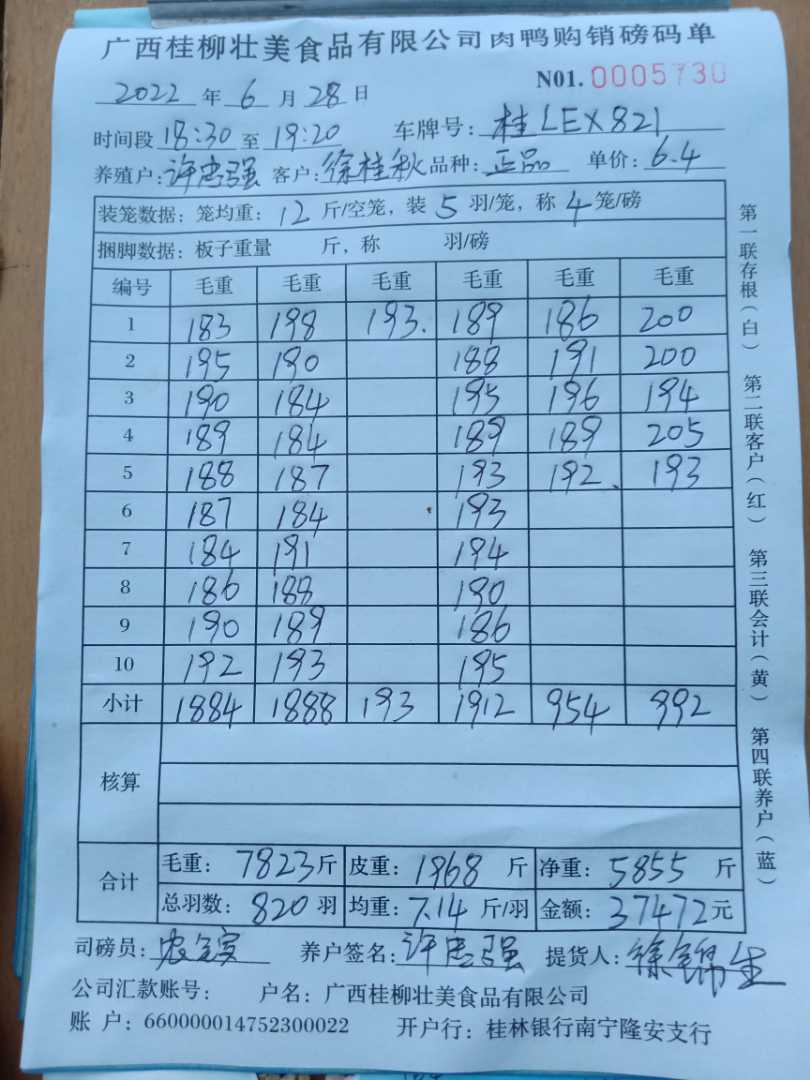 广西桂柳壮美食品有限公司肉鸭购销磅码单
2022 年 6 月 28 日 N01. 0005730
时间段 18:30 至 19:20 车牌号: 桂LEX821
养殖户: 许忠强 客户: 徐桂秋 品种: 正品 单价: 6.4
装笼数据: 笼均重: 12 斤/空笼, 装 5 羽/笼, 称 4 笼/磅
捆脚数据: 板子重量 斤, 称 羽/磅
编号 毛重 毛重 毛重 毛重 毛重 毛重
1 183 198 193. 189 186 200
2 195 190 188 191 200
3 190 184 195 196 194
4 189 184 189 189 205
5 188 187 193 192. 193
6 187 184 193
7 184 191 194
8 186 188 190
9 190 189 186
10 192 193 195
小计 1884 1888 193 1912 954 992
核算
合计
毛重: 7823斤 皮重: 1968 斤 净重: 5855 斤
总羽数: 820 羽 均重: 7.14 斤/羽 金额: 37472元
司磅员: 养户签名: 许忠强 提货人: 徐锦生
公司汇款账号: 户名: 广西桂柳壮美食品有限公司
账 户: 660000014752300022 开户行: 桂林银行南宁隆安支行
第一联存根(白) 第二联客户(红) 第三联会计(黄) 第四联养户(蓝)